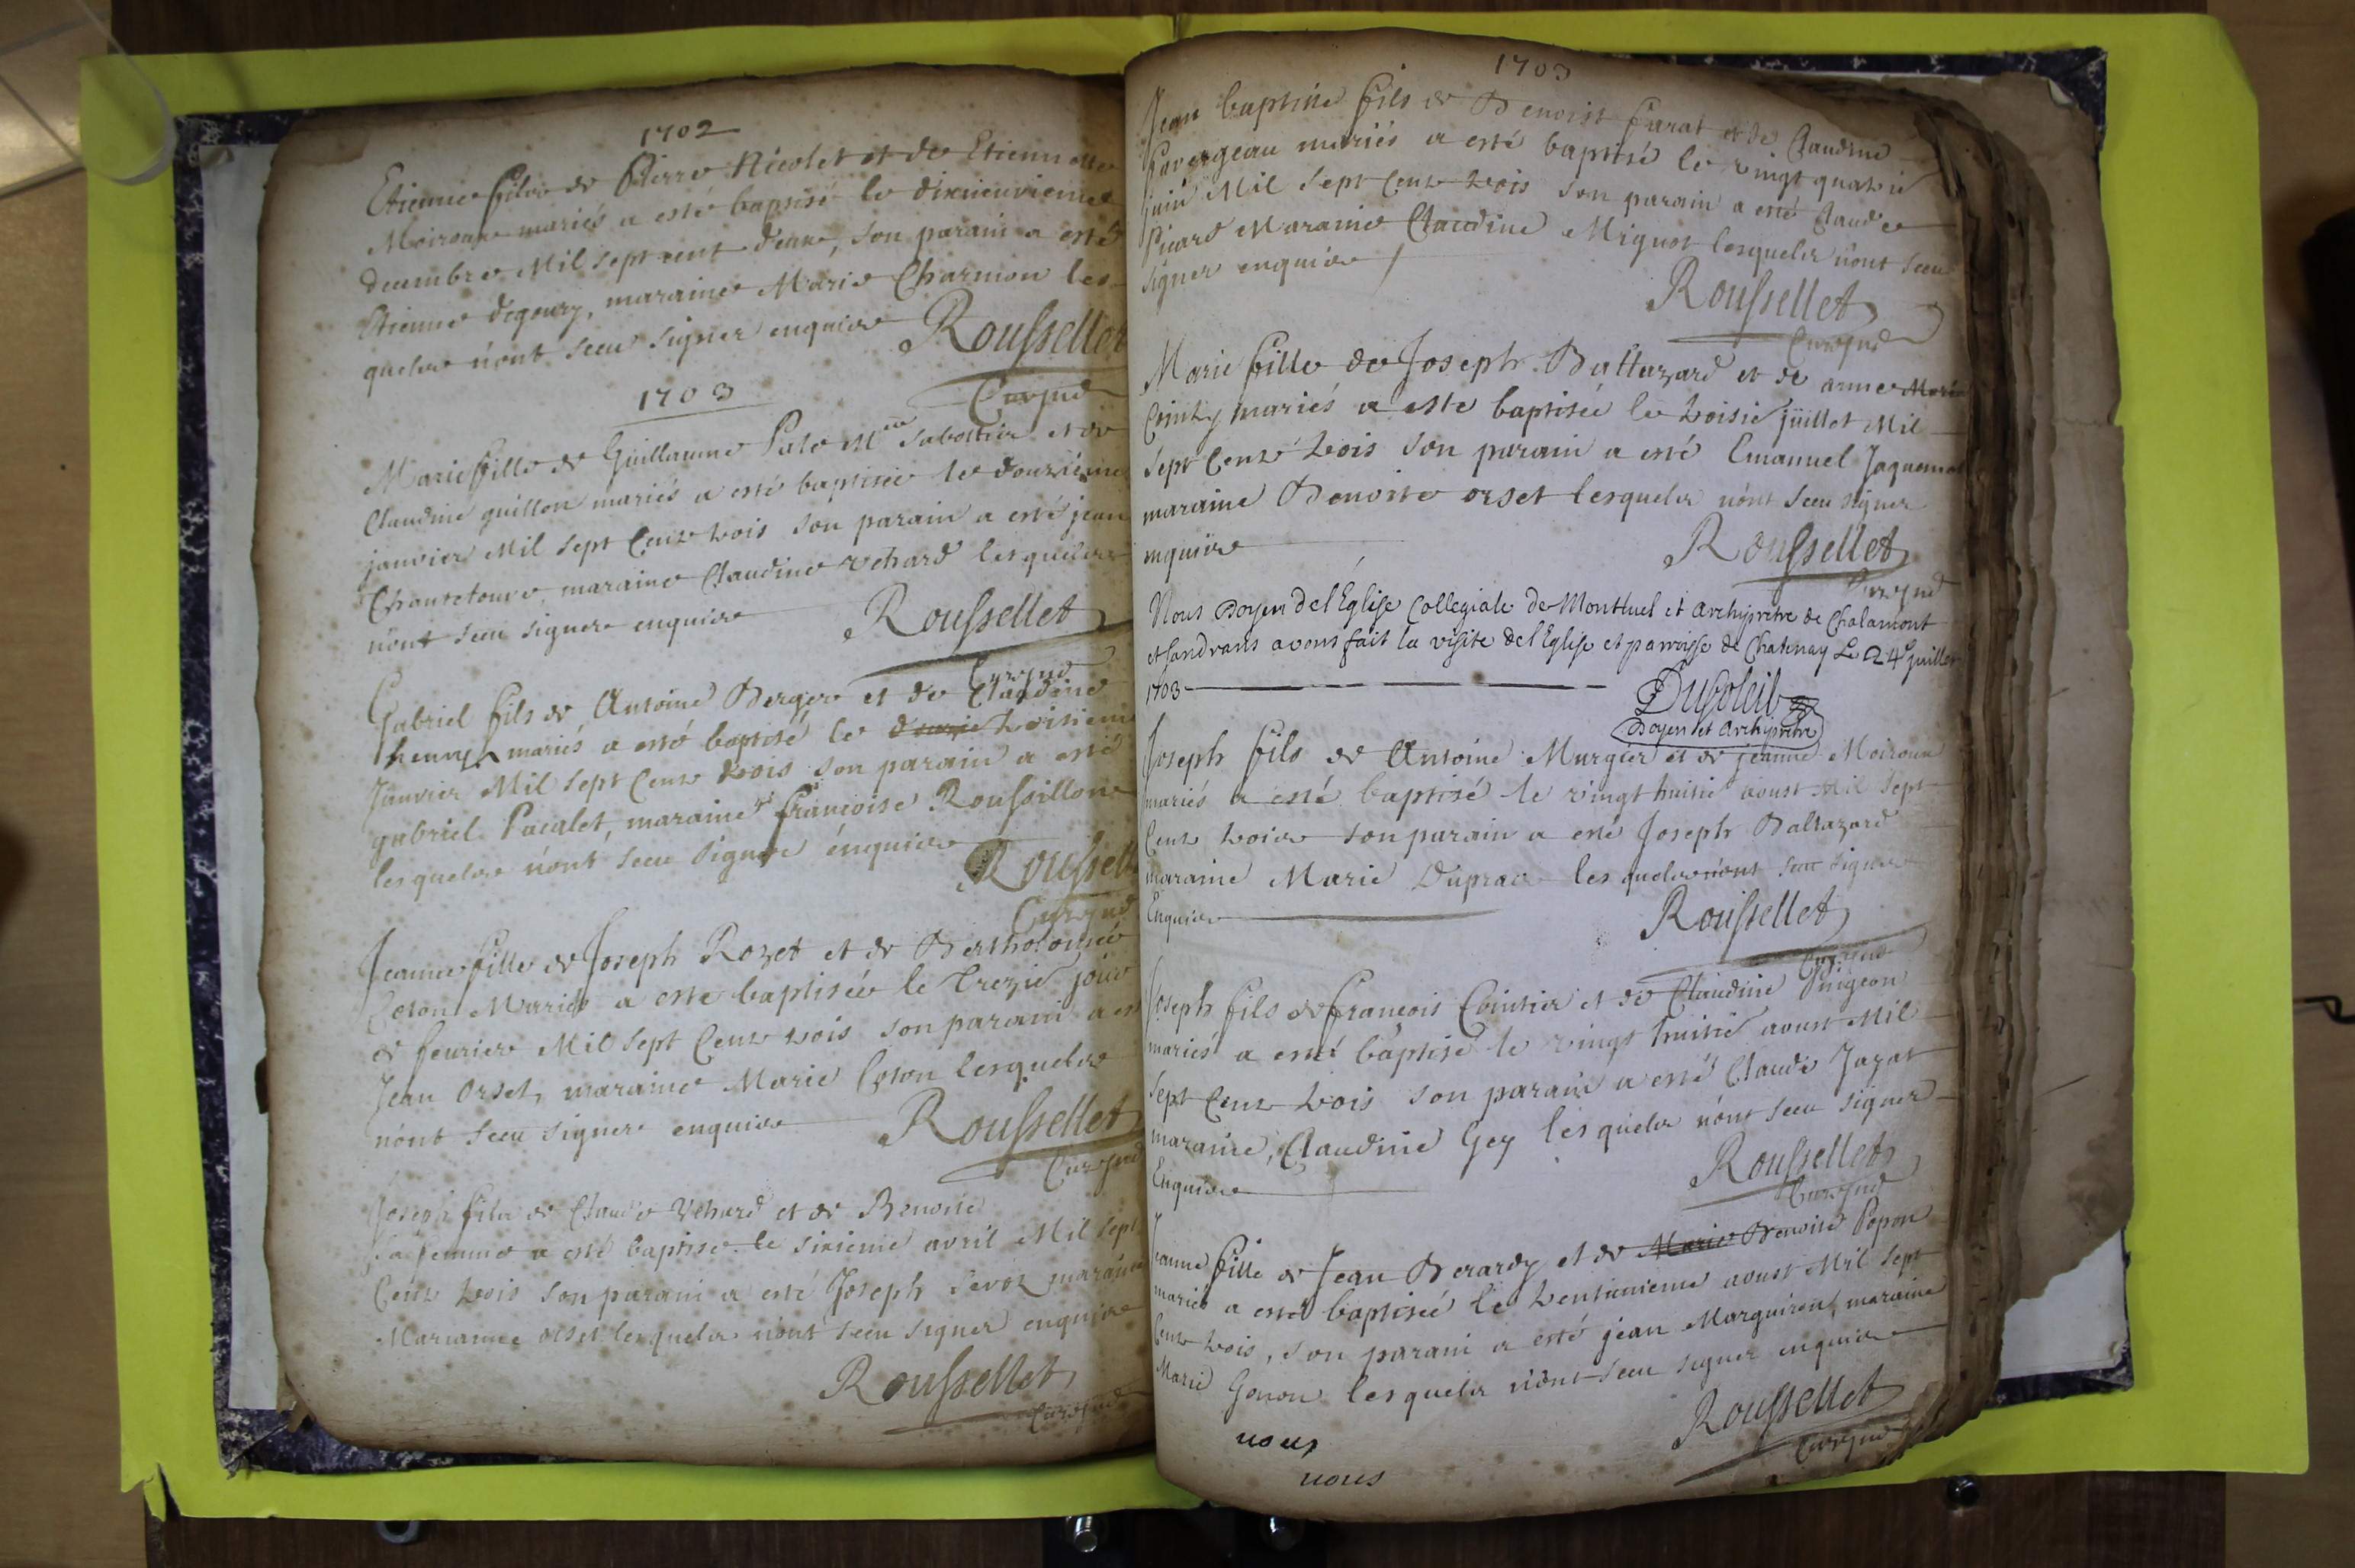 1702
Etienne fils de Pierre Nicolet et de Etiennette
Moiroux mariés a esté baptisé le dixneuvieme
decembre Mil sept cent deux, son parain a esté
Etienne degoury, maraine Marie Charmion les
quels n'ont sceu signer enquis
Roussellet
Curé
1703
Marie fille de Guillaume Pale Mre Sabottier et de
Claudine guillon mariés a esté baptisée le douziéme
janvier Mil sept Cent trois son parain a esté jean
maraine Claudine Vehard lesquels
n'ont sceu signer enquis
Roussellet
Curé
Gabriel fils de Antoine Berger et de Claudine
henry mariés a esté baptisé le troisieme
Janvier Mil sept Cent trois son parain a esté
gabriel Pacalet, maraine françoise Roussillon
lesquels n'ont sceu signer enquis
Roussellet
Curé
Jeanne fille de Joseph Rozet et de Bertholomée
Coton Mariés a esté baptisée le trezie jour
de feurier Mil sept Cent trois son parain a esté
Jean Orset, maraine Marie Coton lesquels
n'ont sceu signer enquis
Roussellet
Curé
Joseph fils de Claude Vehard et de Benoite
sa femme a esté baptisé le sixieme avril Mil sept
Cent trois son parain a esté Joseph Sevoz maraine
Marianne orset lesquels n'ont sceu signer enquis
Roussellet
Curé
1703
Jean baptiste fils de Benoist farat et de Claudine
Favergeau mariés a esté baptisé le vingt quatrie
juin Mil sept Cent trois son parain a esté Claude
Picard Maraine Claudine Mignot lesquels n'ont sceu
signer enquis
Roussellet
Curé
Marie fille de Joseph Baltazard et de anne Marie
Cointy mariés a este baptisée le troisie juillet Mil
sept Cent trois son parain a esté Emanuel Jaquemet
maraine Benoite orset lesquels n'ont sceu signer
enquis
Roussellet
Curé
Nous Doyen del'Eglise Collegiale de Montluel et Archyprêtre de Chalamont
et Sandrans avons fait la visite del'Eglise et parroisse de Chatenay Le 24e juillet
1703
Dusoleil
Doyen et Archyprêtre
Joseph fils de Antoine Murgier et de jeanne Moiroux
mariés a esté baptisé le vingt huitie aoust Mil sept
Cent trois son parain a esté Joseph Baltazard
maraine Marie Duprat lesquels n'ont sceu signer
Enquis
Roussellet
Curé
Joseph fils de françois Cointier et de Claudine Pingeon
mariés a esté baptisé le vingt huitie aoust Mil
sept Cent trois son parain a esté Claude Jayat
maraine, Claudine Gey lesquels n'ont sceu signer
Enquis
Roussellet
Curé
Jeanne fille de Jean Berardy et de Marie Benoite Popon
mariés a esté baptisée le trentunieme aoust Mil sept
Cent trois, son parain a esté jean Marguiron, maraine
Marie Gonon lesquels n'ont sceu signer enquis
Roussellet
Curé
nous
nous